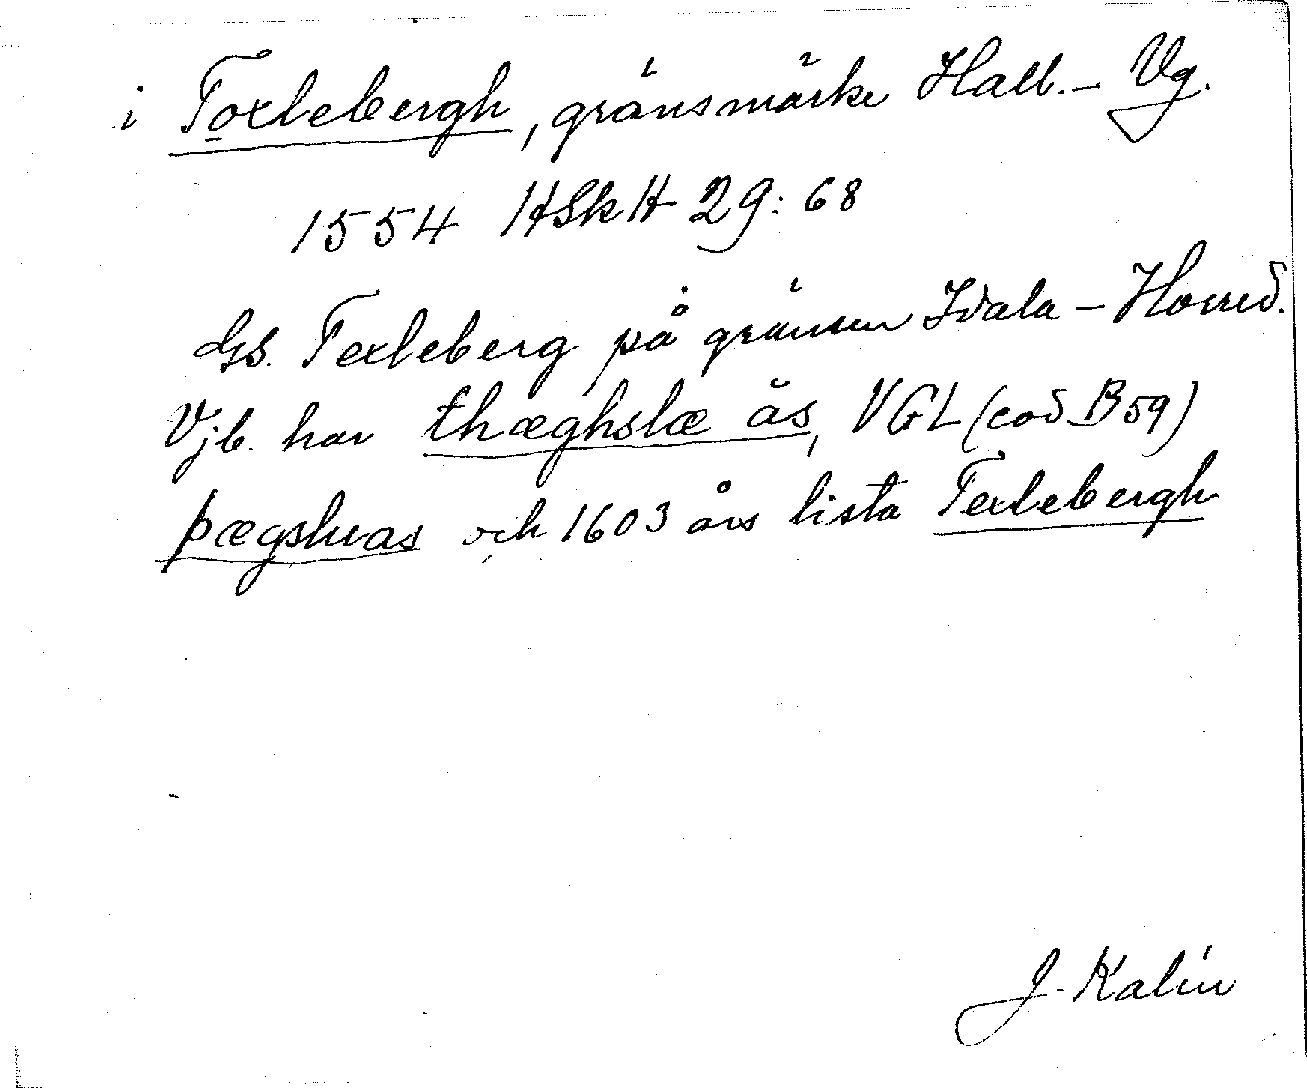 i Toxlebergh, gränsmärke Hall. – Vg.
1554 HSkH 29: 68
Gs. Texleberg på gränsen Idala – Horred.
Vjb. har thæghslæ ås, VGL (cod B 59)
þægsluas och 1603 års lista Texlebergh
J. Kalén